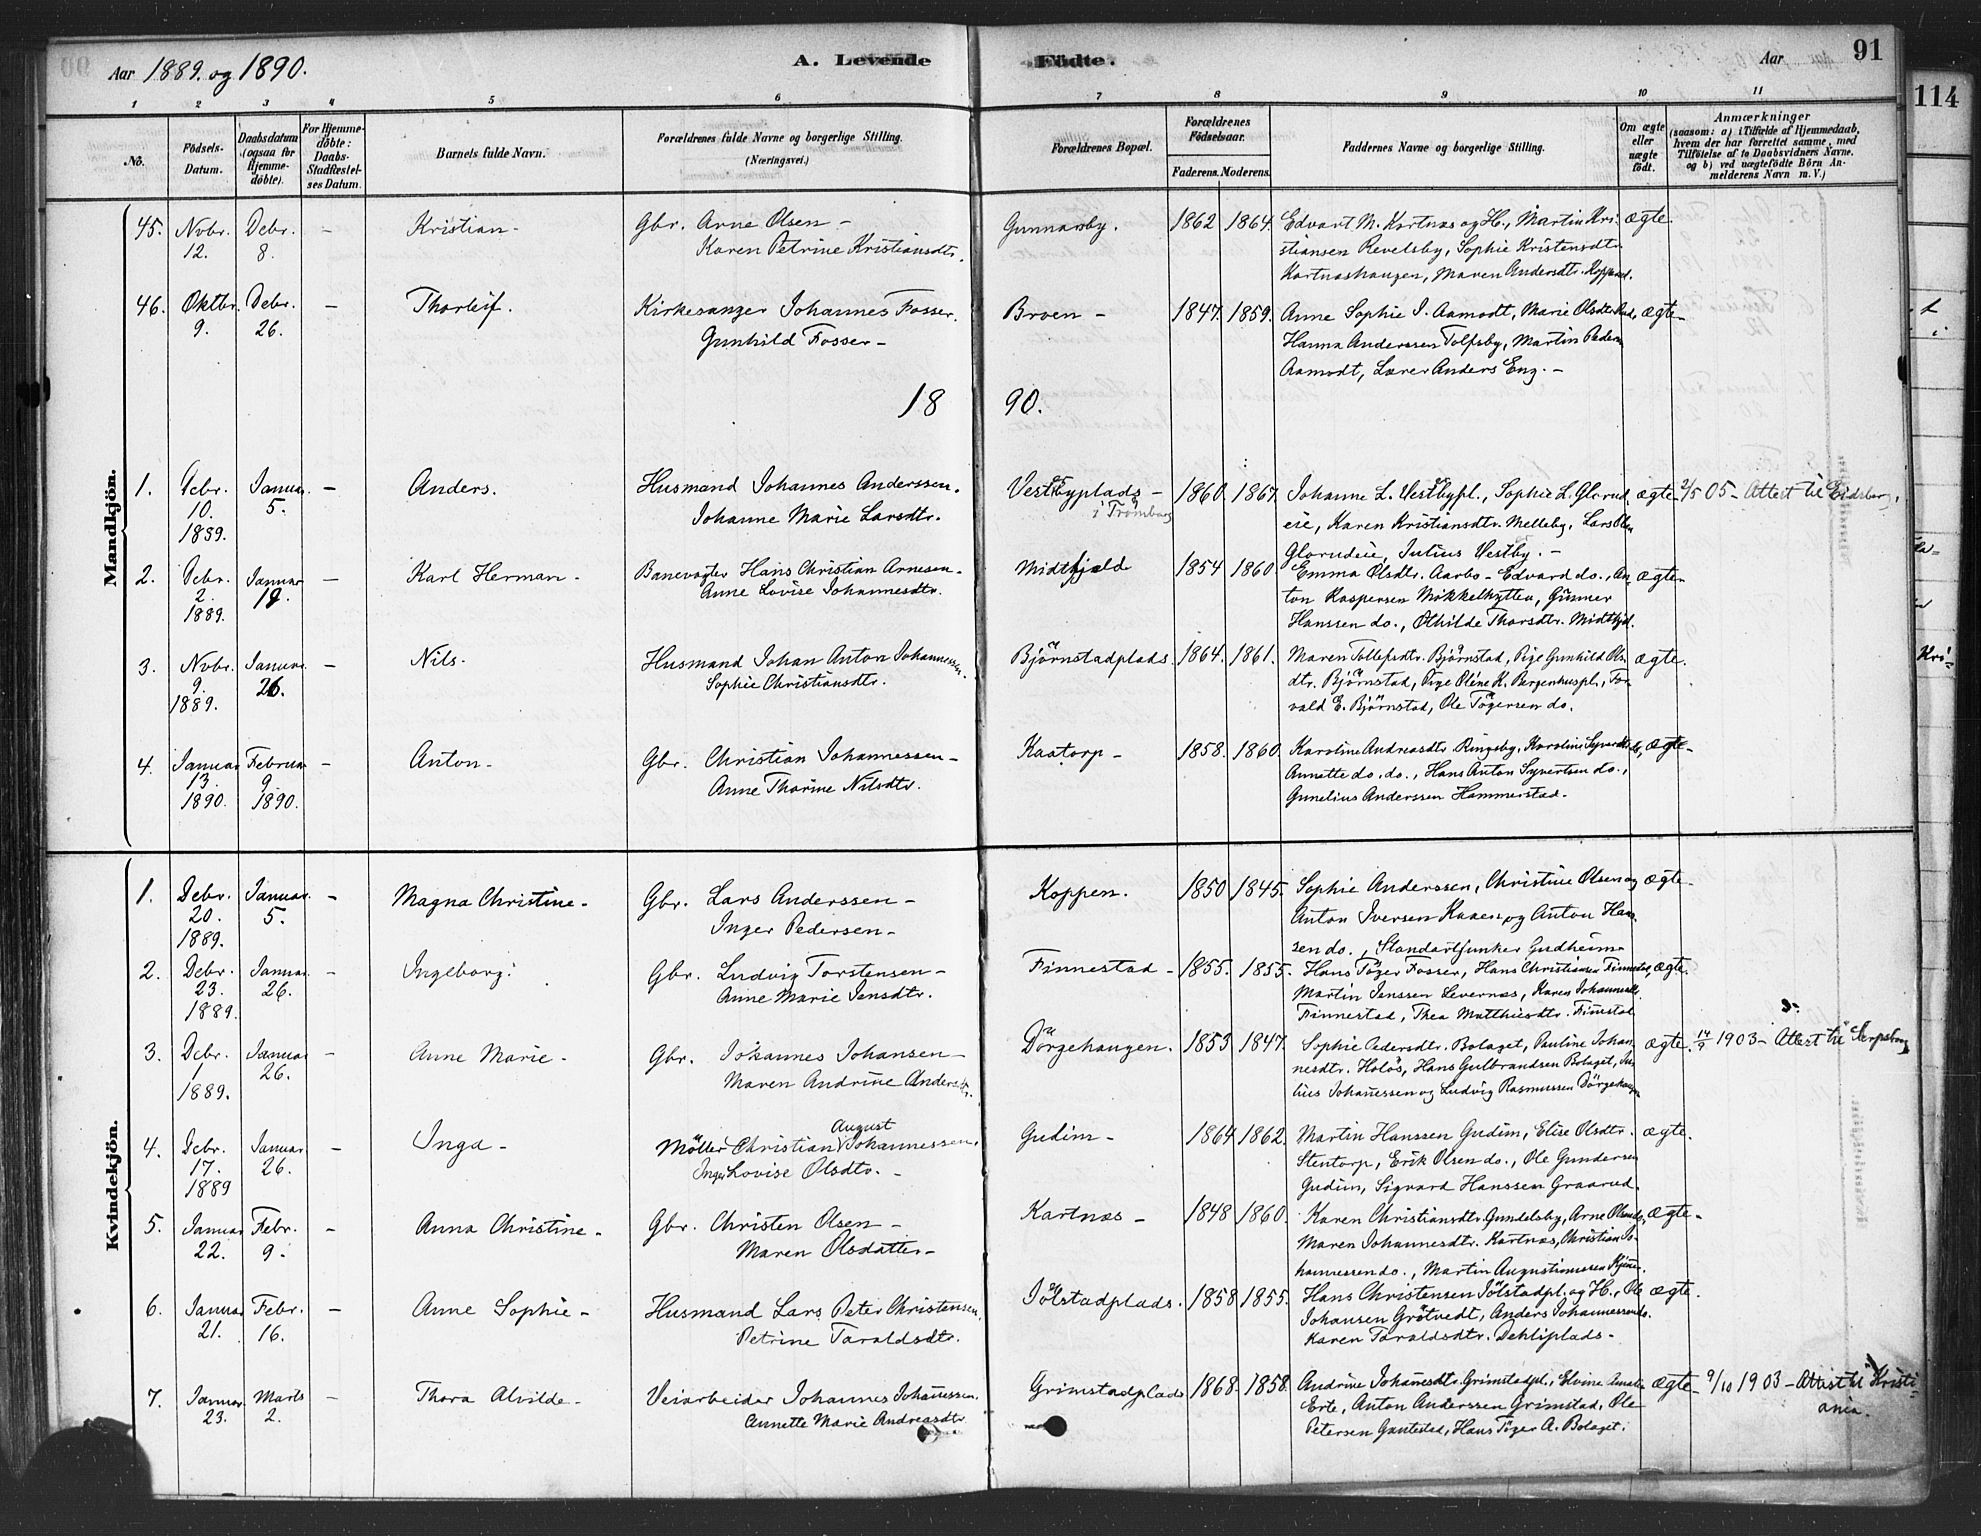 Aar 1889. og 1890.
A. Levende
Födte.
Aar
91
114
1 2 3 4 5 6 7 8 9 10 11
No.
Födsels-Datum.
Daabsdatum (ogsaa for Hjemme-döbte).
For Hjemme-döbte: Daabs-Stadfæstel-ses Datum.
Barnets fulde Navn.
Forældrenes fulde Navne og borgerlige Stilling.
(Næringsvei.)
Forældrenes Bopæl.
Forældrenes Födselsaar.
Faderens. Moderens.
Faddernes Navne og borgerlige Stilling.
Om ægte eller uægte födt.
Anmærkninger
(saasom: a) i Tilfælde af Hjemmedaab,
hvem der har forrettet samme, med
Tilföielse af to Daabsvidners Navne.
og b) ved uægtefödte Börn An-
melderens Navn m. V.)
Mandkjön.
45. Novbr. 12. Debr. 8. - Kristian - Gbr. Arne Olsen - Gunnarsby. 1862 1864. Edvart M. Kartnæs og H., Martin Kri- ægte.
Karen Petrine Kristiansdtr. stiansen Revelsby, Sophie Kristensdtr.
Kartnæshaugen, Maren Andersdtr.
46. Oktbr. 9. Debr. 26. - Thorleif. Kirkesanger Johannes Fosser. Broen - 1847. 1859. Anne Sophie J. Aamodt, Marie Olsdtr. ægte -
Gunhild Fosser - Hanna Anderssen Tolfsby, Martin
Aamodt, Lærer Anders Eng. -
18 90.
1. Debr. 10. 1889. Januar 5. - Anders. Husmand Johannes Anderssen. Vestbyplads - i Trømborg 1860. 1867. Johanne L. Vestbypl., Sophie L. Glorud ægte - 2/5 05 - Attest til Eidsberg.
Johanne Marie Larsdtr. eie, Karen Kristiansdtr. Melleby, Lars Olsen
Glorudeie, Julius Vestby. -
2. Debr. 2. 1889. Januar 19. - Karl Herman - Banevogter Hans Christian Arnesen - Midtfjeld 1854 1860 Emma Olsdtr. Aarbo - Edvard do., An- ægte -
Anne Lovise Johannesdtr. ton Kaspersen Mökkelhytten, Gunner
Hanssen do., Othilde Thorsdtr. Midtfjd.
3. Novbr. 9. 1889. Januar 26. - Nils. Husmand Johan Anton Johannessen. Björnstadplads. 1864. 1861. Maren Tollefsdtr. Björnstad, Pige Gunhild Ols- ægte.
Sophie Christiansdtr. dtr. Björnstad, Pige Oline K. Bergenhuspl., Tor-
vald E. Björnstad, Ole Tögersen do.
4. Januar 13. 1890. Februar 9. 1890. - Anton - Gbr. Christian Johannessen - Kaatorp - 1858. 1860. Karoline Andreasdtr. Ringsby, Karoline ægte -
Anne Thorine Nilsdtr. Annette do. do., Hans Anton Syvertsen do.,
Gunelius Anderssen Hammerstad -
Kvindekjön.
1. Debr. 20. 1889. Januar 5. - Magna Christine - Gbr. Lars Anderssen - Koppen. 1850 1845. Sophie Anderssen, Christine Olsen og ægte -
Inger Pedersen - Anton Iversen og Anton Han-
sen do., Standartjunker Gudheim
2. Debr. 23. 1889. Januar 26. - Ingeborg. Gbr. Ludvig Torstensen - Finnestad - 1855. 1855. Hans Töger Fosser, Hans Christiansen Finnestad, ægte.
Anne Marie Jensdtr. Martin Jenssen Levernæs, Karen Johannesdtr.
Finnestad, Thea Matthisdtr. Finnestad
3. Debr. 1 1889. Januar 26. - Anne Marie - Gbr. Johannes Johansen - Dörgehaugen. 1853 1847. Sophie Pedersdtr. Bolaget, Pauline Johan- ægte. 14/9 1903 - Attest til Sarpsborg
Maren Andrine Andersdtr. nesdtr. Holös, Hans Gulbrandsen Bolaget, Ju-
lius Johannessen og Ludvig Rasmussen Dörgehaugen
4. Debr. 17. 1889 Januar 26. - Inga - Möller Christian August Johannessen. Gudim - 1864 1862. Martin Hanssen Gudim, Elise Olsdtr. ægte.
Inger Lovise Olsdtr. - Stentorp, Erik Olsen do., Ole Gundersen
Gudim, Sigvard Hanssen Graarud.
5. Januar 22. Febr. 9. - Anna Christine - Gbr. Christen Olsen - Kartnæs - 1848 1860. Karen Christiansdtr. Gundelsby, Arne Olsen do., ægte -
Maren Olsdatter - Maren Johannesdtr. Kartnæs, Christian Jo-
hannessen do., Martin Augustinussen
6. Januar 21. Febr. 16. - Anne Sophie - Husmand Lars Peter Christensen. Jölstadplads. 1858 1855. Hans Christensen Jölstadpl. og H., Ole ægte.
Petrine Taraldsdtr. Johansen Grötvedt, Anders Johannessen do.
Karen Taraldsdtr. Dehliplads -
7. Januar 23. Marts 2. - Thora Alvilde - Veiarbeider Johannes Johannessen. Grimstadplads 1868. 1858. Andrine Johannesdtr. Grimstadpl., Elvine Amalie ægte - 9/10 1903 - Attest til Kristi-
Annette Marie Andreasdtr. Erte, Anton Anderssen Grimstad, Ole ania.
Petersen Gautestad, Hans Töger A. Bolaget.